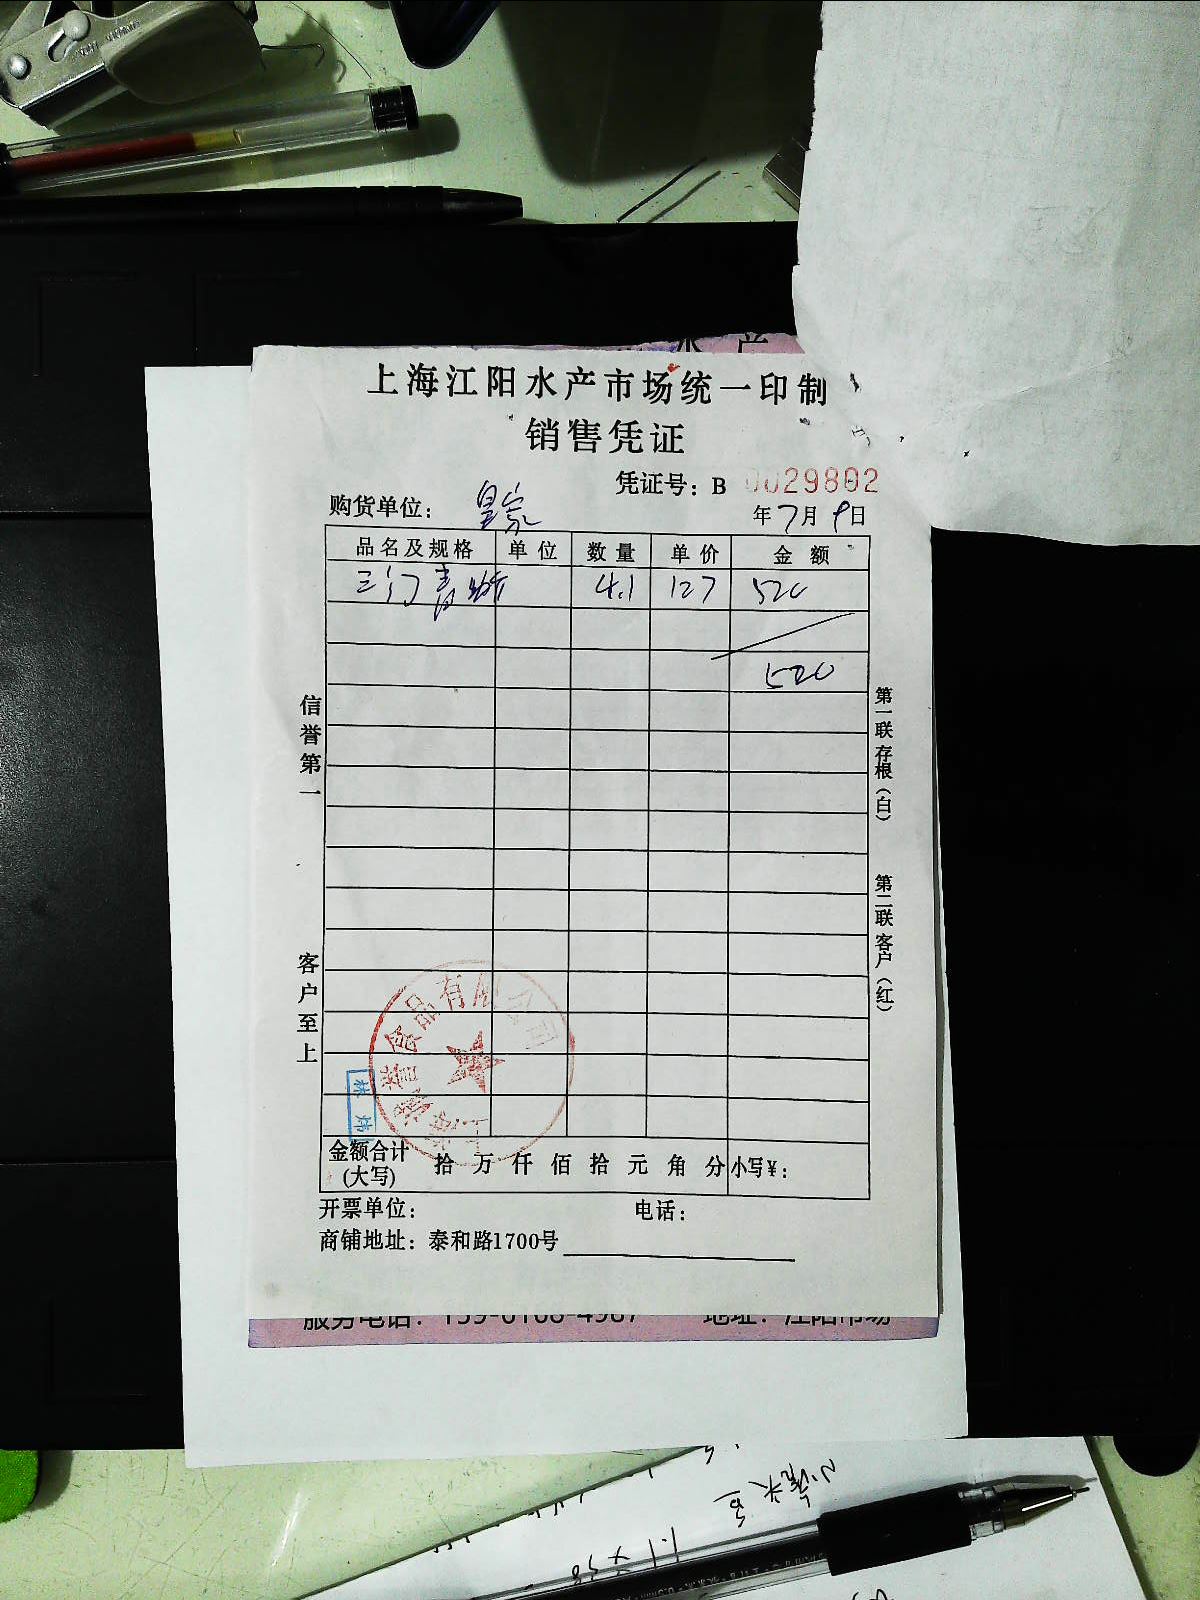 上海江阳水产市场统一印制
销售凭证
凭证号：B 0029802
购货单位： 皇家
年7月9日
品名及规格 单位 数量 单价 金额
三门青蟹 4.1 127 520
520
信誉第一
客户至上
第一联存根（白）
第二联客户（红）
食品有限公司
林炜
金额合计（大写） 拾 万 仟 佰 拾 元 角 分 小写￥：
开票单位： 电话：
商铺地址：泰和路1700号
服务电话：159-0168-4987 地址：江阳市场
1.1 × 58